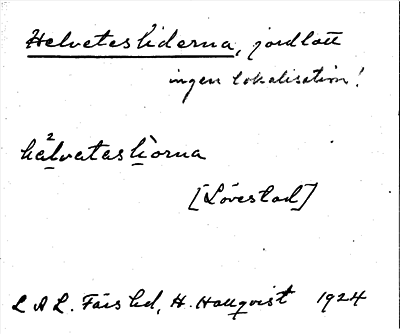 Helvetesliderna, jordlott
ingen lokalisation!
hä²lvatasli̇̀orna
[Lövestad]
L A L. Färs hd, H. Hallqvist 1924